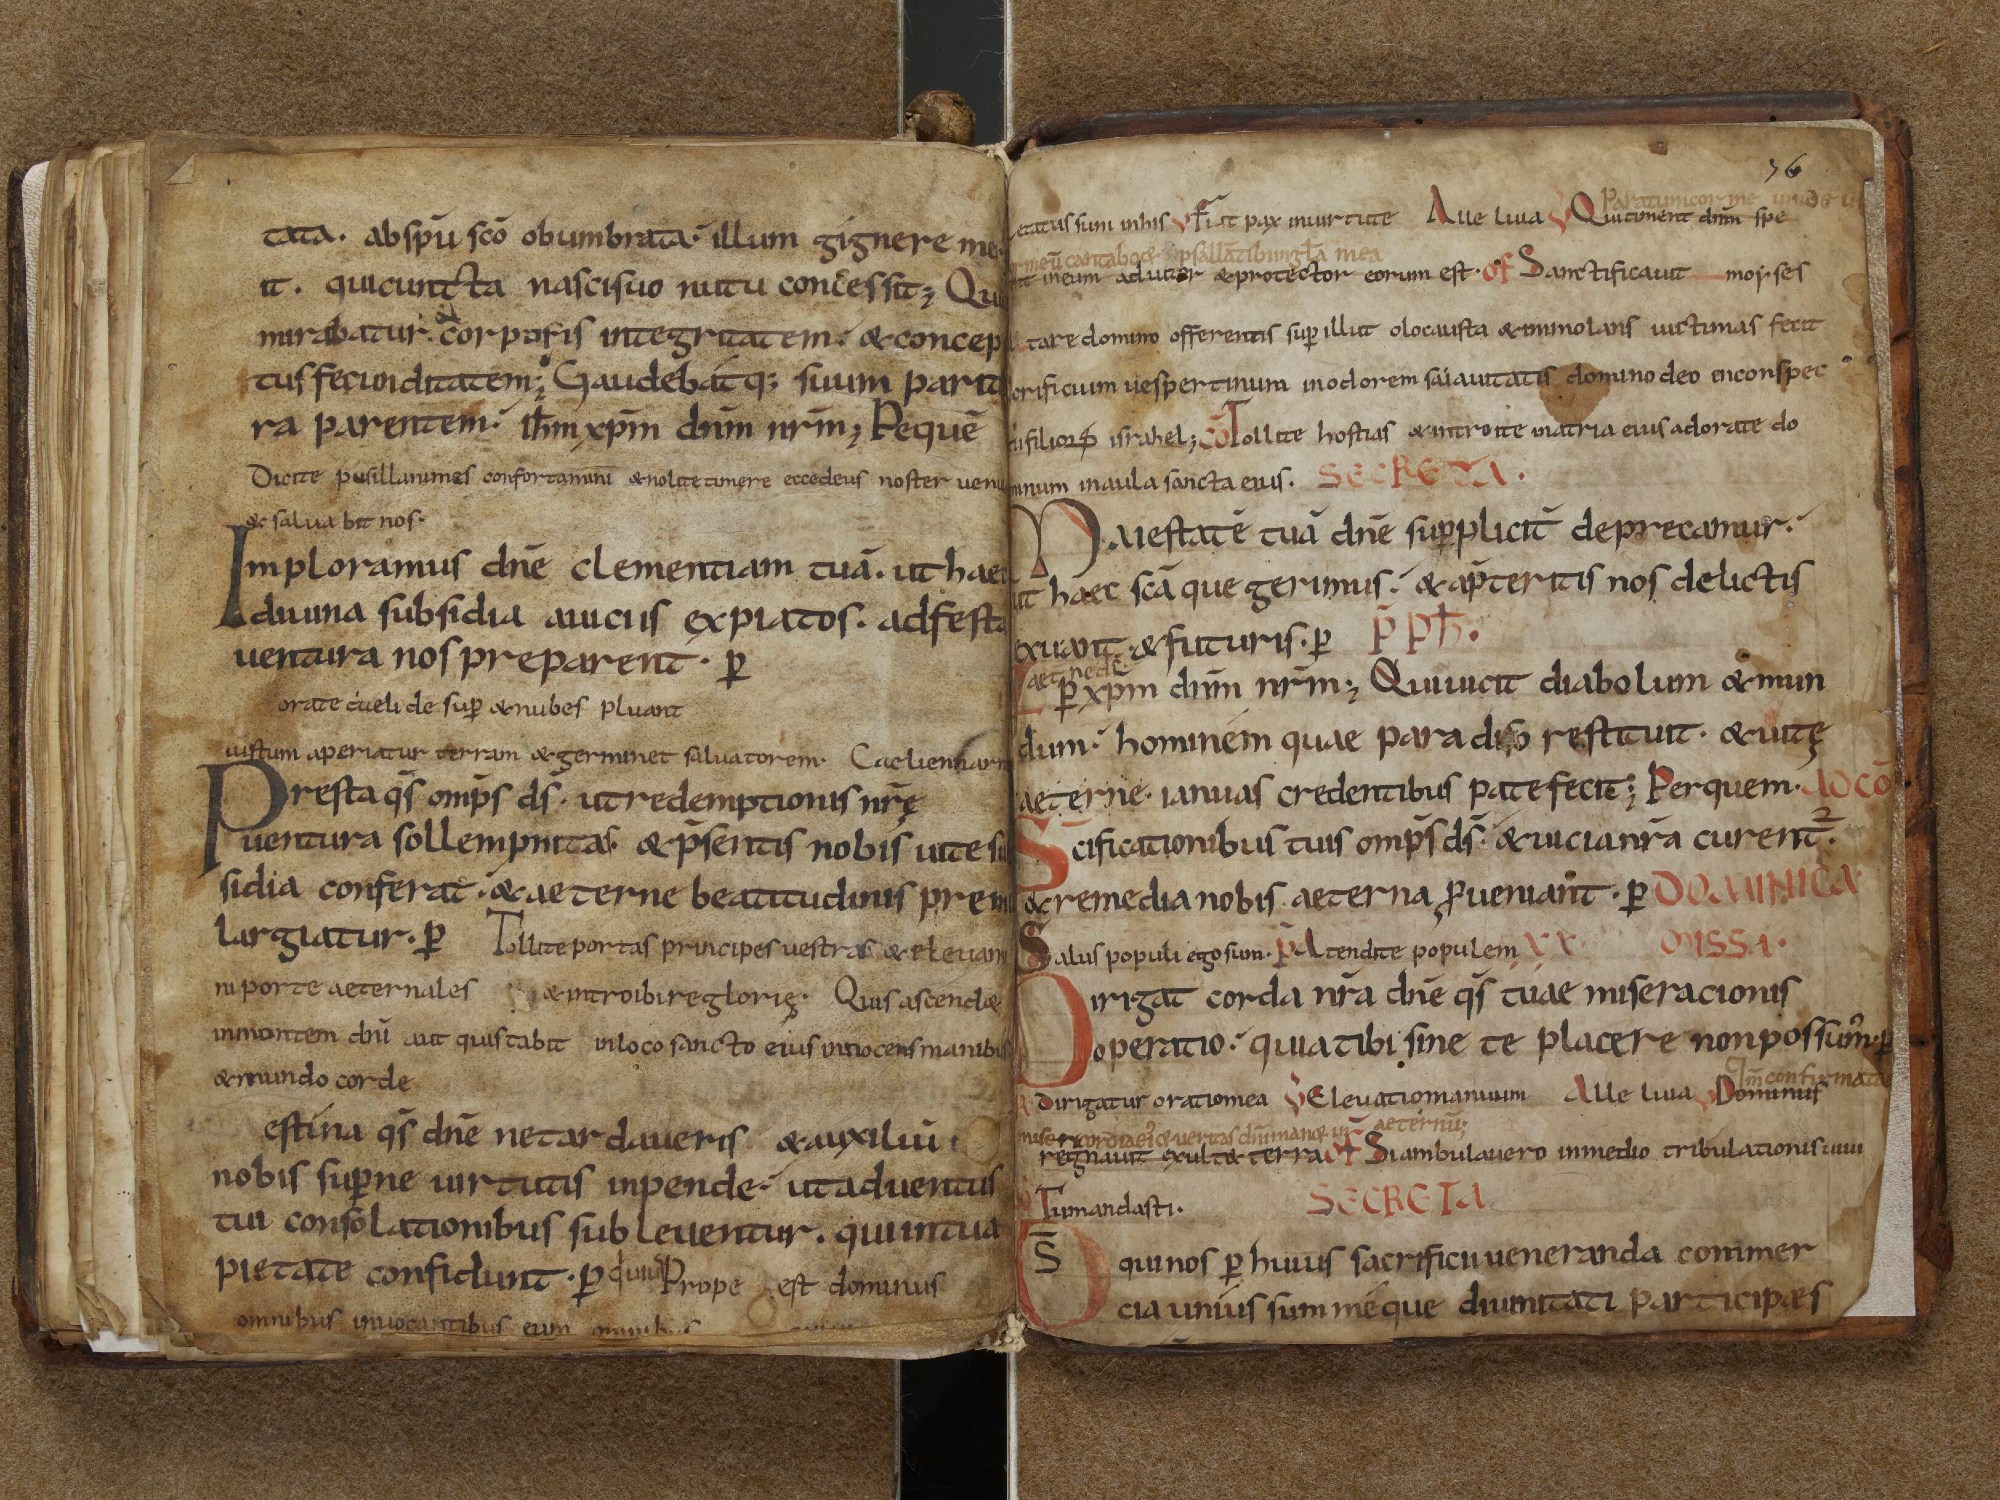 tata. abspū scō obumbrata. illum gignere me
it. quicuntta nascisuo nutu concessit; Qui
mirabatur. corporis integritatem. & concep
tus fecunditatem; Gaudebatq; suum parit
ra parentem. ihm xpm dnm nrm; Pequē
Dicite pusillanimes confortamini & nolite timere ecce deus noster ueni
& saluabit nos.
Imploramus dnē clementiam tuā. ut haec
diuina subsidia auiciis expiatos. ad festa
uentura nos preparent. p̄
orate caeli de sup & nubes pluant
iustum aperiatur terram & germinet saluatorem. Caeli enarr
Presta qs omps ds. ut redemptionis nrę
uentura sollempnitas. & psentis nobis uite su
sidia conferat. & aeterne beatitudinis prem
largiatur. p̄ Tollite portas principes uestras & eleuam
ni porte aeternales & introibi rex glorię. Quis ascend&
inmontem dnī aut quis tabit inloco sancto eius innocens manibus
& mundo corde
estina qs dnē netardaueris & auxiliū
nobis supne uirtutis inpende. ut aduentus
tui consolationibus subleuentur. qui in tua
pietate confidunt. p̄ qui uiuis Prope est dominus
omnibus inuocantibus eum omnibus
76
Paratum cor me
etatus sum inhis V Fiat pax inuirtute Alle luia V Qui timent dnm spe
r meū cantabo & psallā tibi in glā mea
aduitor & protector eorum est. of Sanctificauit moyses
tare domino offerentis sup illut olocausta & immolans uictimas fecit
crificium uespertinum inodorem suauitatis domino deo inconspec
u filiorꝝ israhel; cō Tollite hostias & introite inatria eius adorate do
minum inaula sancta eius. SECRETA.
Maiestatē tuā dnē supplicit deprecamur.
ut haec scā que gerimus. & apteritis nos delictis
exuant & futuris. p̄ P PH.
aet nede
p xpm dnm nrm; Qui uicit diabolum & mun
dum. hominem quae paradiso restituit. & uitę
aeterne. ianuas credentibus patefecit; Perquem. AD CŌ
Scificationibus tuis omps ds. & uicia nra curent.
& remedia nobis aeterna ꝓueniant. p̄ DOMINICA
Salus populi ego sum. p̄ Atendite populem XX MISSA.
Dirigat corda nra dnē qs tuae miseracionis
operatio. quia tibi sine te placere non possum. p̄
Qm confirmata
R Dirigatur oratio mea V Eleuatio manuum Alle luia V Dominus
misericordia ei & ueritas dni man& in aeternū;
regnauit exult& terra of Si ambulauero inmedio tribulationis uiui
cō Tu mandasti. SECRETA
DS qui nos p huius sacrificii ueneranda commer
cia unius summeque diuinitati participes